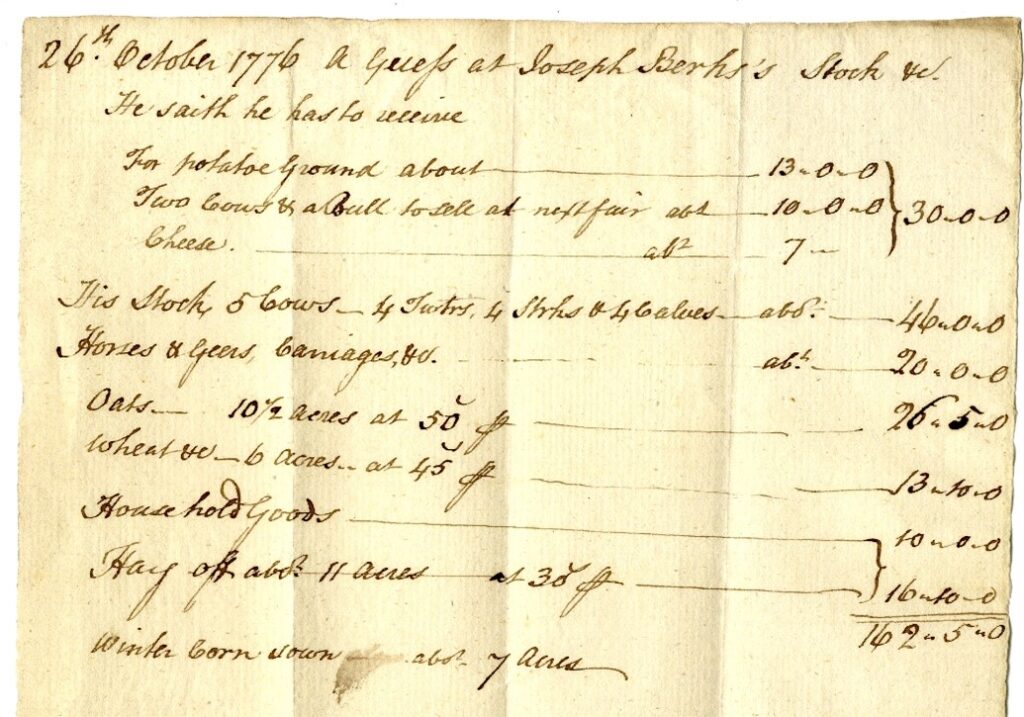 26th. October 1776 A Guess at Joseph Berks's Stock &c.
He saith he has to receive
For potatoe Ground about 13-0-0
Two Cows & a Bull to sell at next fair abt 10-0-0 } 30-0-0
Cheese. abt 7-
His Stock, 5 Cows - 4 Twtrs, 4 Strks & 4 Calves - abot. 46-0-0
Horses & Geers, Carriages, &c. abt. 20-0-0
Oats - 10 1/2 Acres at 50s p 26-5-0
Wheat &c - 6 Acres - at 45s p 13-10-0
Household Goods 10-0-0
Hay off abot. 11 Acres at 30s p 16-10-0
162-5-0
Winter Corn sown abot. 7 Acres